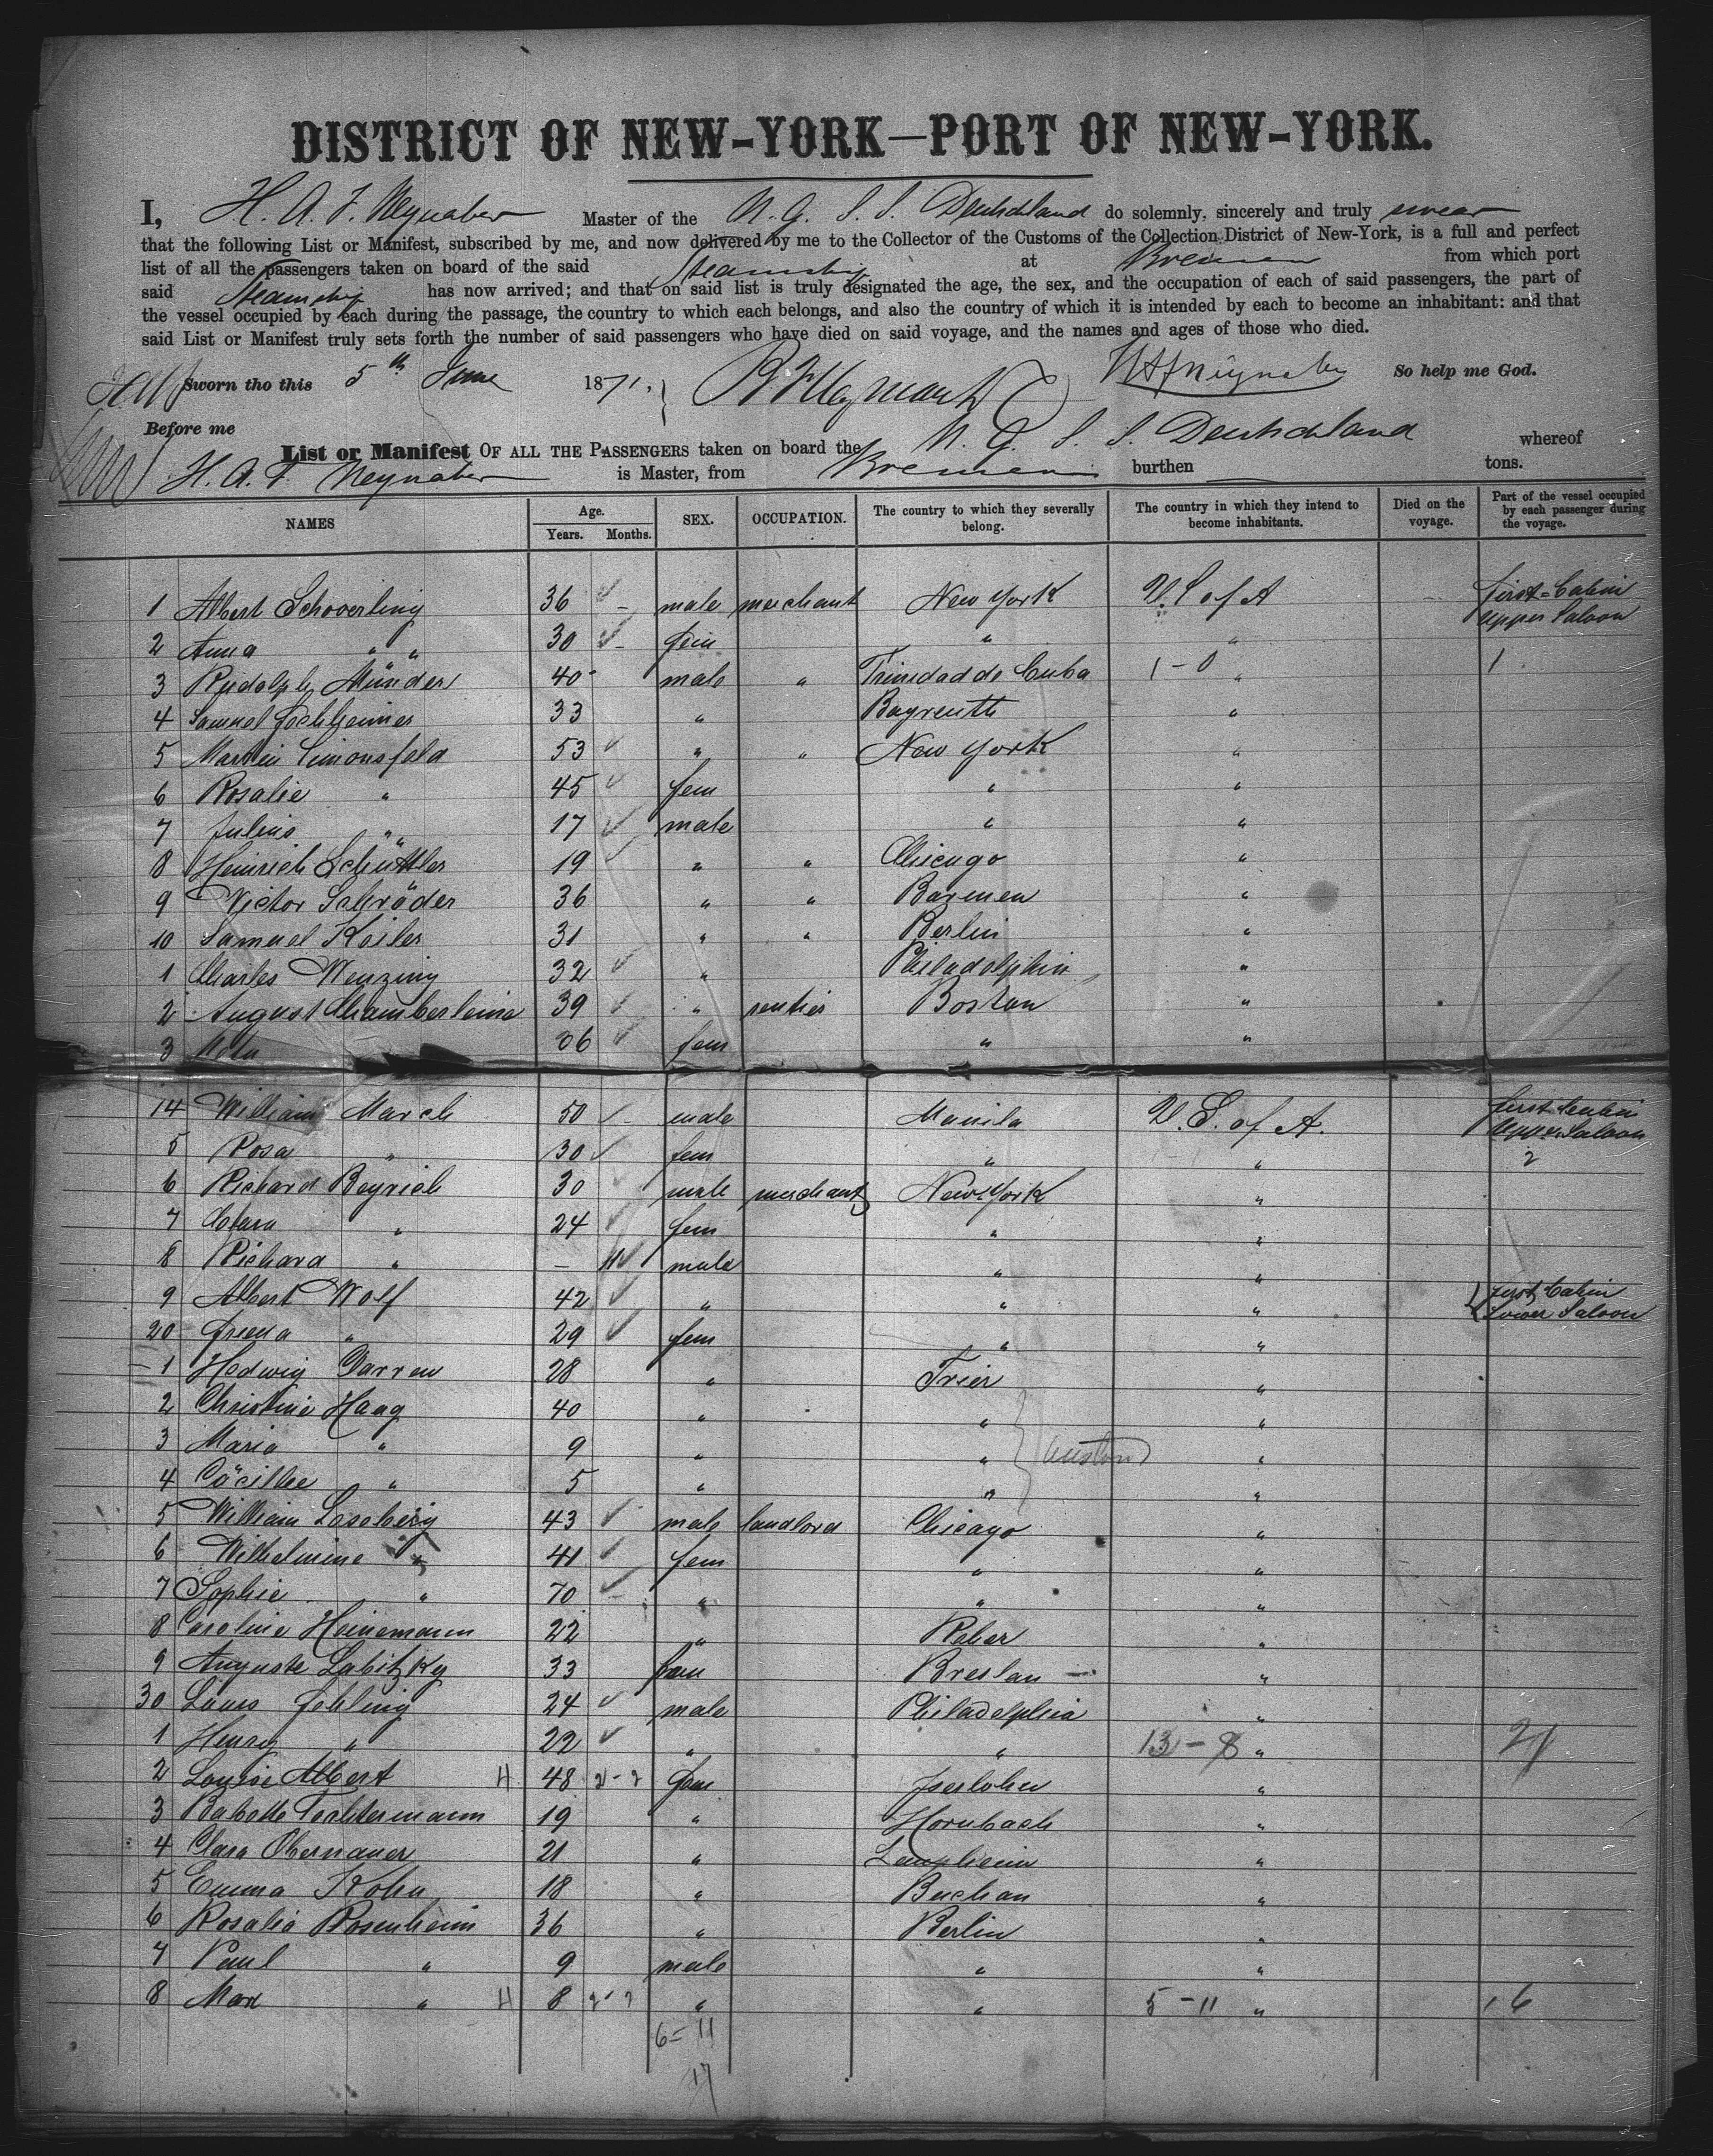 DISTRICT OF NEW-YORK—PORT OF NEW-YORK.
I, H. A. F. Neynaber Master of the N. G. S. S. Deutschland do solemnly, sincerely and truly swear
that the following List or Manifest, subscribed by me, and now delivered by me to the Collector of the Customs of the Collection District of New-York, is a full and perfect
list of all the passengers taken on board of the said Steamship at Bremen from which port
said Steamship has now arrived; and that on said list is truly designated the age, the sex, and the occupation of each of said passengers, the part of
the vessel occupied by each during the passage, the country to which each belongs, and also the country of which it is intended by each to become an inhabitant: and that
said List or Manifest truly sets forth the number of said passengers who have died on said voyage, and the names and ages of those who died.
Sworn tho this 5th June 1871. HAFNeynaber So help me God.
Before me
List or Manifest OF ALL THE PASSENGERS taken on board the N. G. S. S. Deutschland whereof
H. A. F. Neynaber is Master, from Bremen burthen tons.
NAMES Age. Years. Months. SEX. OCCUPATION. The country to which they severally belong. The country in which they intend to become inhabitants. Died on the voyage. Part of the vessel occupied by each passenger during the voyage.
1 Albert Schoverling 36 - male merchant New York U. S. of A first-Cabin Upper Saloon
2 Anna " " 30 - fem " "
3 Rudolph Münder 40 male " Trinidad de Cuba 1-0 " 1
4 Samuel 33 " Bayreuth "
5 Martin Simonsfeld 53 " " New York "
6 Rosalie " 45 fem " "
7 Julius " " 17 male " "
8 Heinrich Schüttler 19 " " Chicago "
9 Victor Schröder 36 " " Barmen "
10 Samuel Koiler 31 " " Berlin "
1 Charles Wenzing 32 " Philadelphia "
2 August Chamberleine 39 " rentier Boston "
3 06 fem " "
14 William March 50 - male Manila U. S. of A. first Cabin Upper Saloon
5 Rosa " 30 fem " " 2
6 Richard Beyrich 30 male merchant New York "
7 Clara " 24 fem " "
8 Richard " - 11 male " "
9 Albert Wolf 42 " " " first Cabin Lower Saloon
20 " 29 fem " "
1 Hedwig Darren 28 " Trier "
2 Christine Haag 40 " " "
3 Maria " 9 " " "
4 Cöcilie " 5 " " "
5 William Loseberg 43 male landlord Chicago "
6 Wilhelmine " 41 fem " "
7 Sophie " 70 " " "
8 Caroline Heinemann 22 " "
9 Auguste Labitzky 33 fem Breslau "
30 Louis Fehling 24 male Philadelphia "
1 Henry " 22 " " 13-8 " 21
2 Louise Albert H 48 fem Iserlohn "
3 Babette Tochtermann 19 " Hornbach "
4 Clara Obernauer 21 " Laupheim "
5 Emma Kohn 18 " Buchau "
6 Rosalie Rosenheim 36 " Berlin "
7 Paul " 9 male " "
8 Max " H 8 " " 5-11 " 16
6=11
17